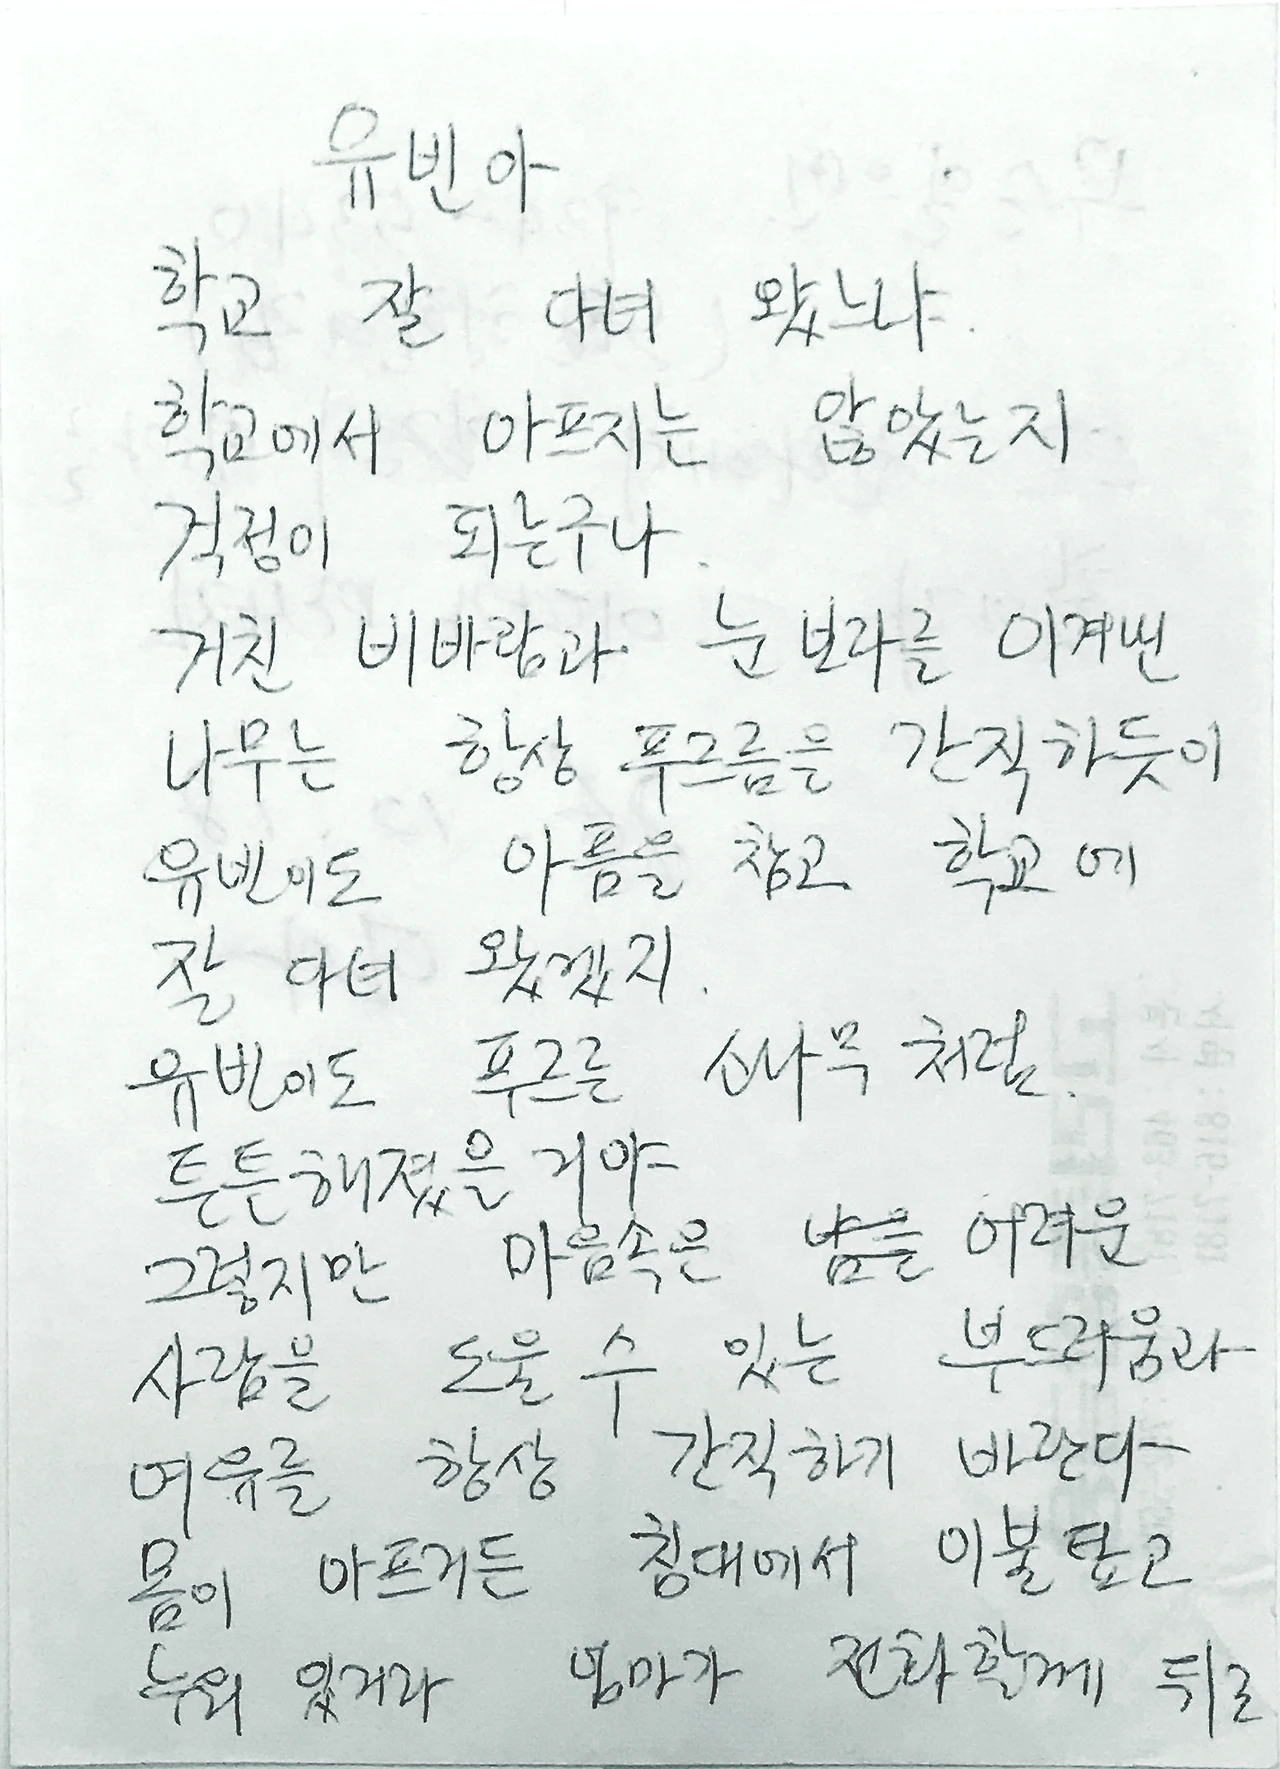 유빈아
학교 잘 다녀 왔느냐.
학교에서 아프지는 않았는지
걱정이 되는구나.
거친 비바람과 눈보라를 이겨낸
나무는 항상 푸르름을 간직하듯이
유빈이도 아픔을 참고 학교에
잘 다녀 왔겠지.
유빈이도 푸르른 소나무처럼.
튼튼해졌을거야
그렇지만 마음속은 어려운
사람을 도울 수 있는 부드러움과
여유를 항상 간직하기 바란다
몸이 아프거든 침대에서 이불 덮고
누워 있거라 엄마가 전화할께 뒤로